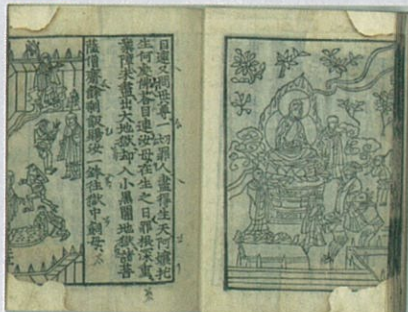 目連又問世尊一切罪人盡得生天阿孃托
生何處佛答目連汝母在生之日罪根深重
業障未盡出大地獄却入小黑闇地獄諸菩
薩僧齋餘剩飯賜汝一鉢往獄中飼母